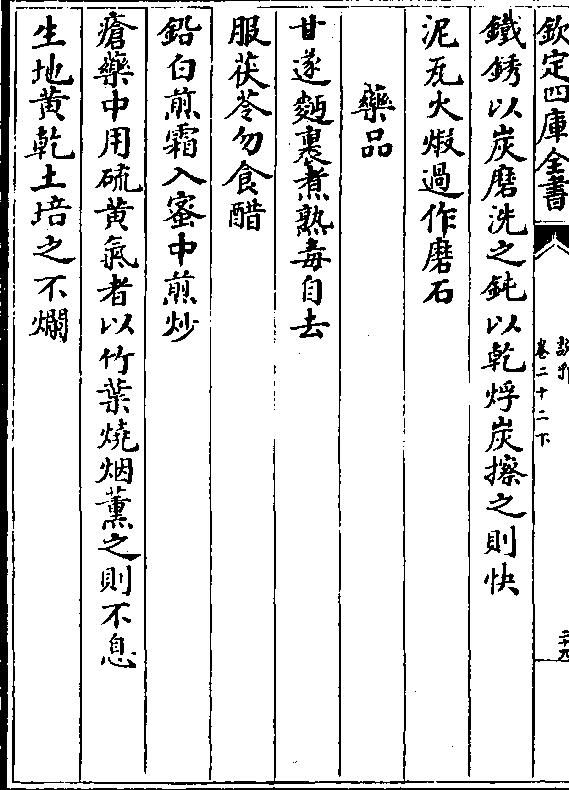 欽定四庫全書
卷二十二下
鐵銹以炭磨洗之鈍以乾烰炭擦之則快
泥瓦火煅過作磨石
藥品
甘遂麵裏煮熟毒自去
服茯苓勿食醋
鉛白煎霜入蜜中煎炒
瘡藥中用硫黄氣者以竹葉燒烟薰之則不息
生地黄乾土培之不爛